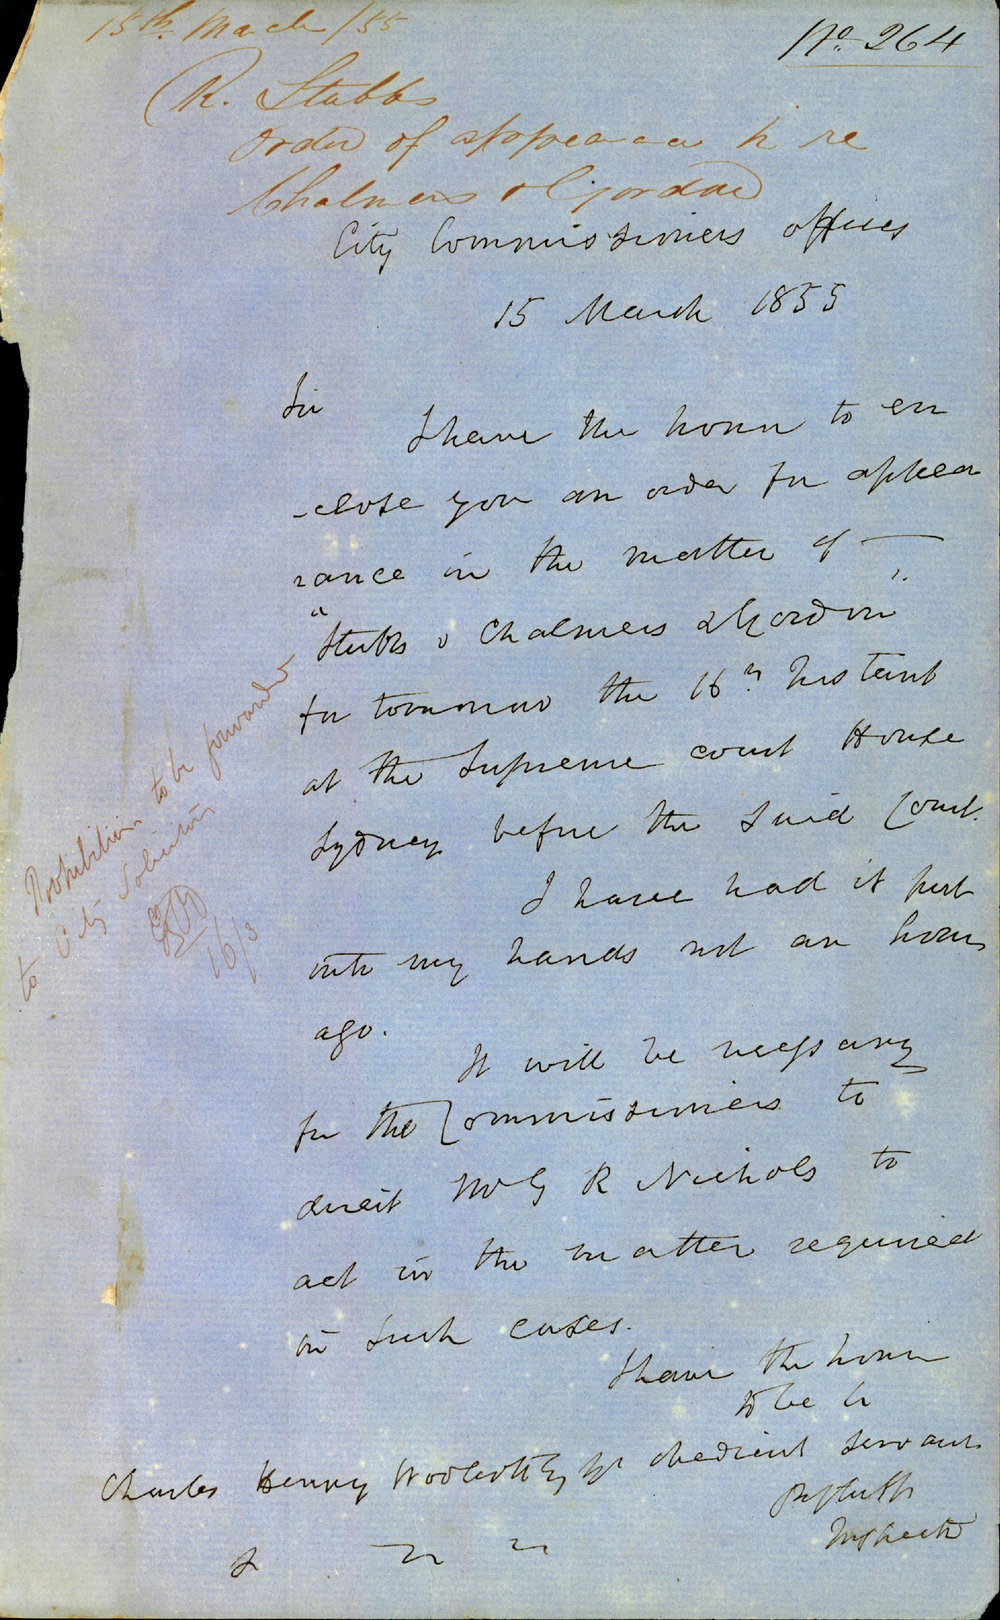 15th March /55
No. 264
R. Stubbs
Order of appearance in re
Chalmers & Gordon
City Commissioners offices
15 March 1855
Sir
I have the honor to en
-close you an order for appea
rance in the matter of —
"Stubbs v Chalmers & Gordon"
for tomorrow the 16th Instant
at the Supreme court House
Sydney before the Said Court.
I have had it put
into my hands not an hour
ago.
It will be necessary
for the Commissioners to
direct Mr G R Nichols to
act in the matter required
in such cases.
I have the honor
to be Sir
Yr obedient servant
RStubbs
Inspector
Charles Henry Woolcott Esq
Prohibition to be forwarded
to City Solicitor
16/3